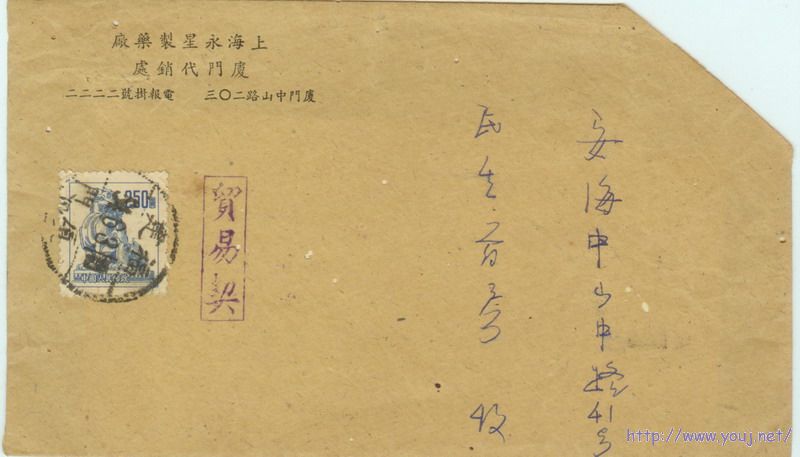 上海永星製藥廠
廈門代銷處
廈門中山路二〇三 電報掛號二二二二
安海中山中路41号
民生百 收
貿易契
250
http://www.youj.net/